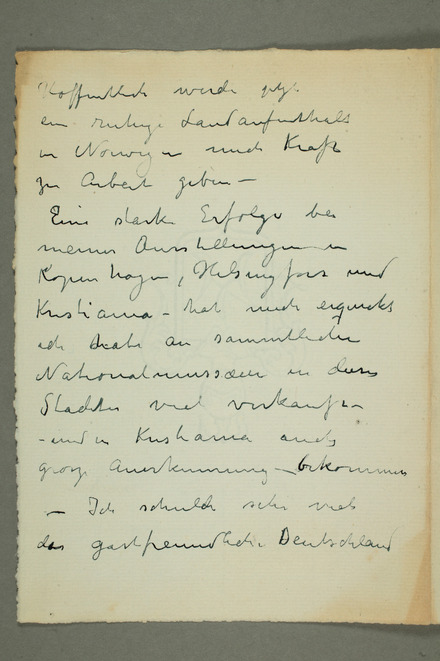 Hoffentlich werde jetzt
ein ruhige Landaufenthalt
in Norwegen mich Kraft
zu Arbeit geben –
Eine starke Erfolge bei
meiner Ausstellungen in
Kopenhagen, Helsingfors und
Kristiania – hat mich erquickt
ich habe an sammtlichen
Nationalmussæen in diesen
Stadter viel verkauft –
– und in Kristiania auch
grosze Anerkennung – bekommen
– Ich schulde sehr viel
das gastfreundliche Deutschland